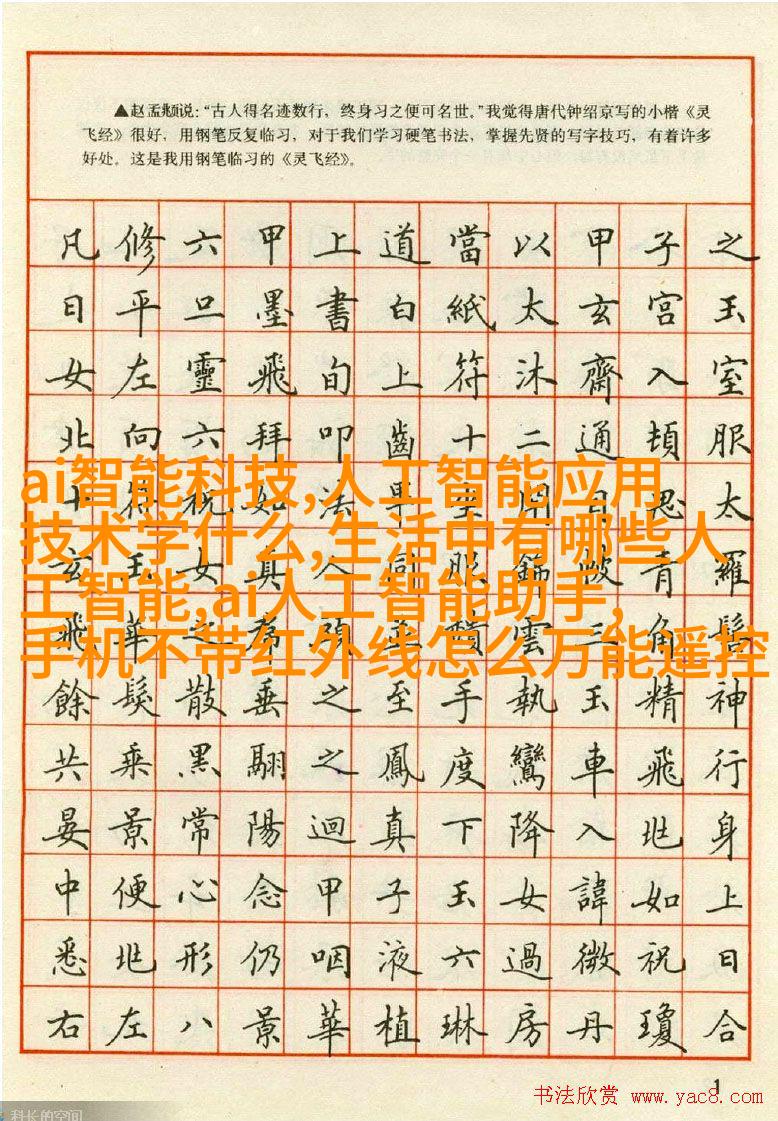 ▲赵孟頫说：“古人得名迹数行，终身习之便可名世。”我觉得唐代钟绍京写的小楷《灵
飞经》很好，用钢笔反复临习，对于我们学习硬笔书法，掌握先贤的写字技巧，有着许多
好处。这是我用钢笔临习的《灵飞经》。
凡修六甲上道當以甲子之
日平旦墨書白紙太玄宮玉
女左靈飛旬上符沐齋入室
北向六拜叩齒十二通頓服
ai智能科技,人工智能应用
技术学什么,生活中有哪些人
工智能,ai人工智能助手,
手机不带红外线怎么万能遥控
餘髮散垂之至手執玉精神
共乘黑翮之鳳度鸞車飛行
晏景常陽迴真下降入北身
中便心念甲子玉女諱如上
悉北形仍咽液六過微祝日
右左八景華植琳房丹瓊合
1
书法欣赏 www.yac8.com
科长的空间